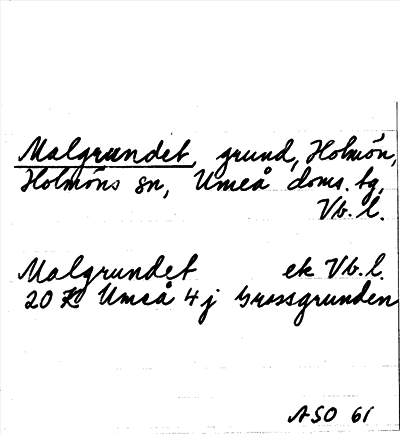 Malgrundet, grund, Holmön,
Holmöns sn, Umeå doms. tg,
Vb. l.
Malgrundet ek Vb. l.
20 K Umeå 4 j Grossgrunden
ASO 61